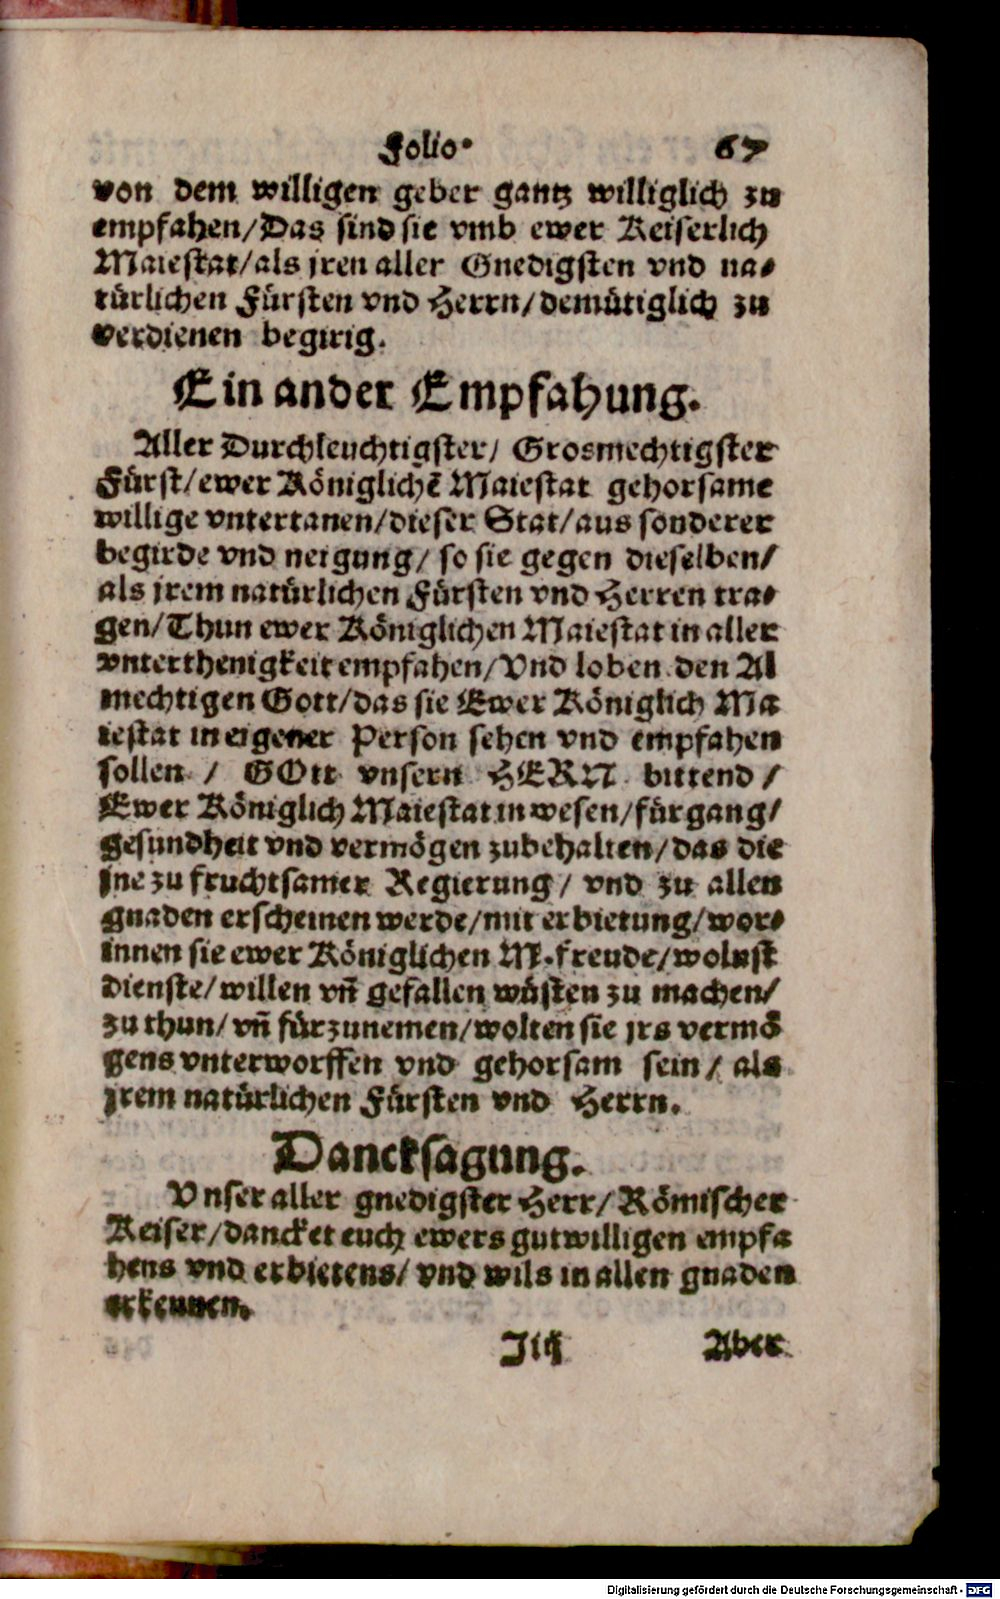 Folio. 67
von dem willigen geber gantz williglich zu
empfahen/Das sind sie vmb ewer Keiserlich
Maiestat/als jren aller Gnedigsten vnd na⸗
türlichen Fürsten vnd Herrn/demütiglich zu
verdienen begirig.
Ein ander Empfahung.
Aller Durchleuchtigster/ Grosmechtigster
Fürst/ewer Königlichē Maiestat gehorsame
willige vntertanen/dieser Stat/aus sonderer
begirde vnd neigung/ so sie gegen dieselben/
als jrem natürlichen Fürsten vnd Herren tra⸗
gen/Thun ewer Königlichen Maiestat in aller
vnterthenigkeit empfahen/Vnd loben den Al
mechtigen Gott/das sie Ewer Königlich Ma
iestat in eigener Person sehen vnd empfahen
sollen / GOtt vnsern HERN bittend/
Ewer Königlich Maiestat in wesen/fürgang/
gesundheit vnd vermögen zubehalten/das die
jne zu fruchtsamer Regierung/ vnd zu allen
gnaden erscheinen werde/mit erbietung/wor⸗
innen sie ewer Königlichen M.freude/wolust
dienste/willen vñ gefallen wüsten zu machen/
zu thun/vñ fürzunemen/wolten sie jrs vermö
gens vnterworffen vnd gehorsam sein/ als
jrem natürlichen Fürsten vnd Herrn.
Dancksagung.
Vnser aller gnedigster Herr/Römischer
Keiser/dancket euch ewers gutwilligen empfa
hens vnd erbietens/ vnd wils in allen gnaden
erkennen.
J iij Aber
Digitalisierung gefördert durch die Deutsche Forschungsgemeinschaft - DFG